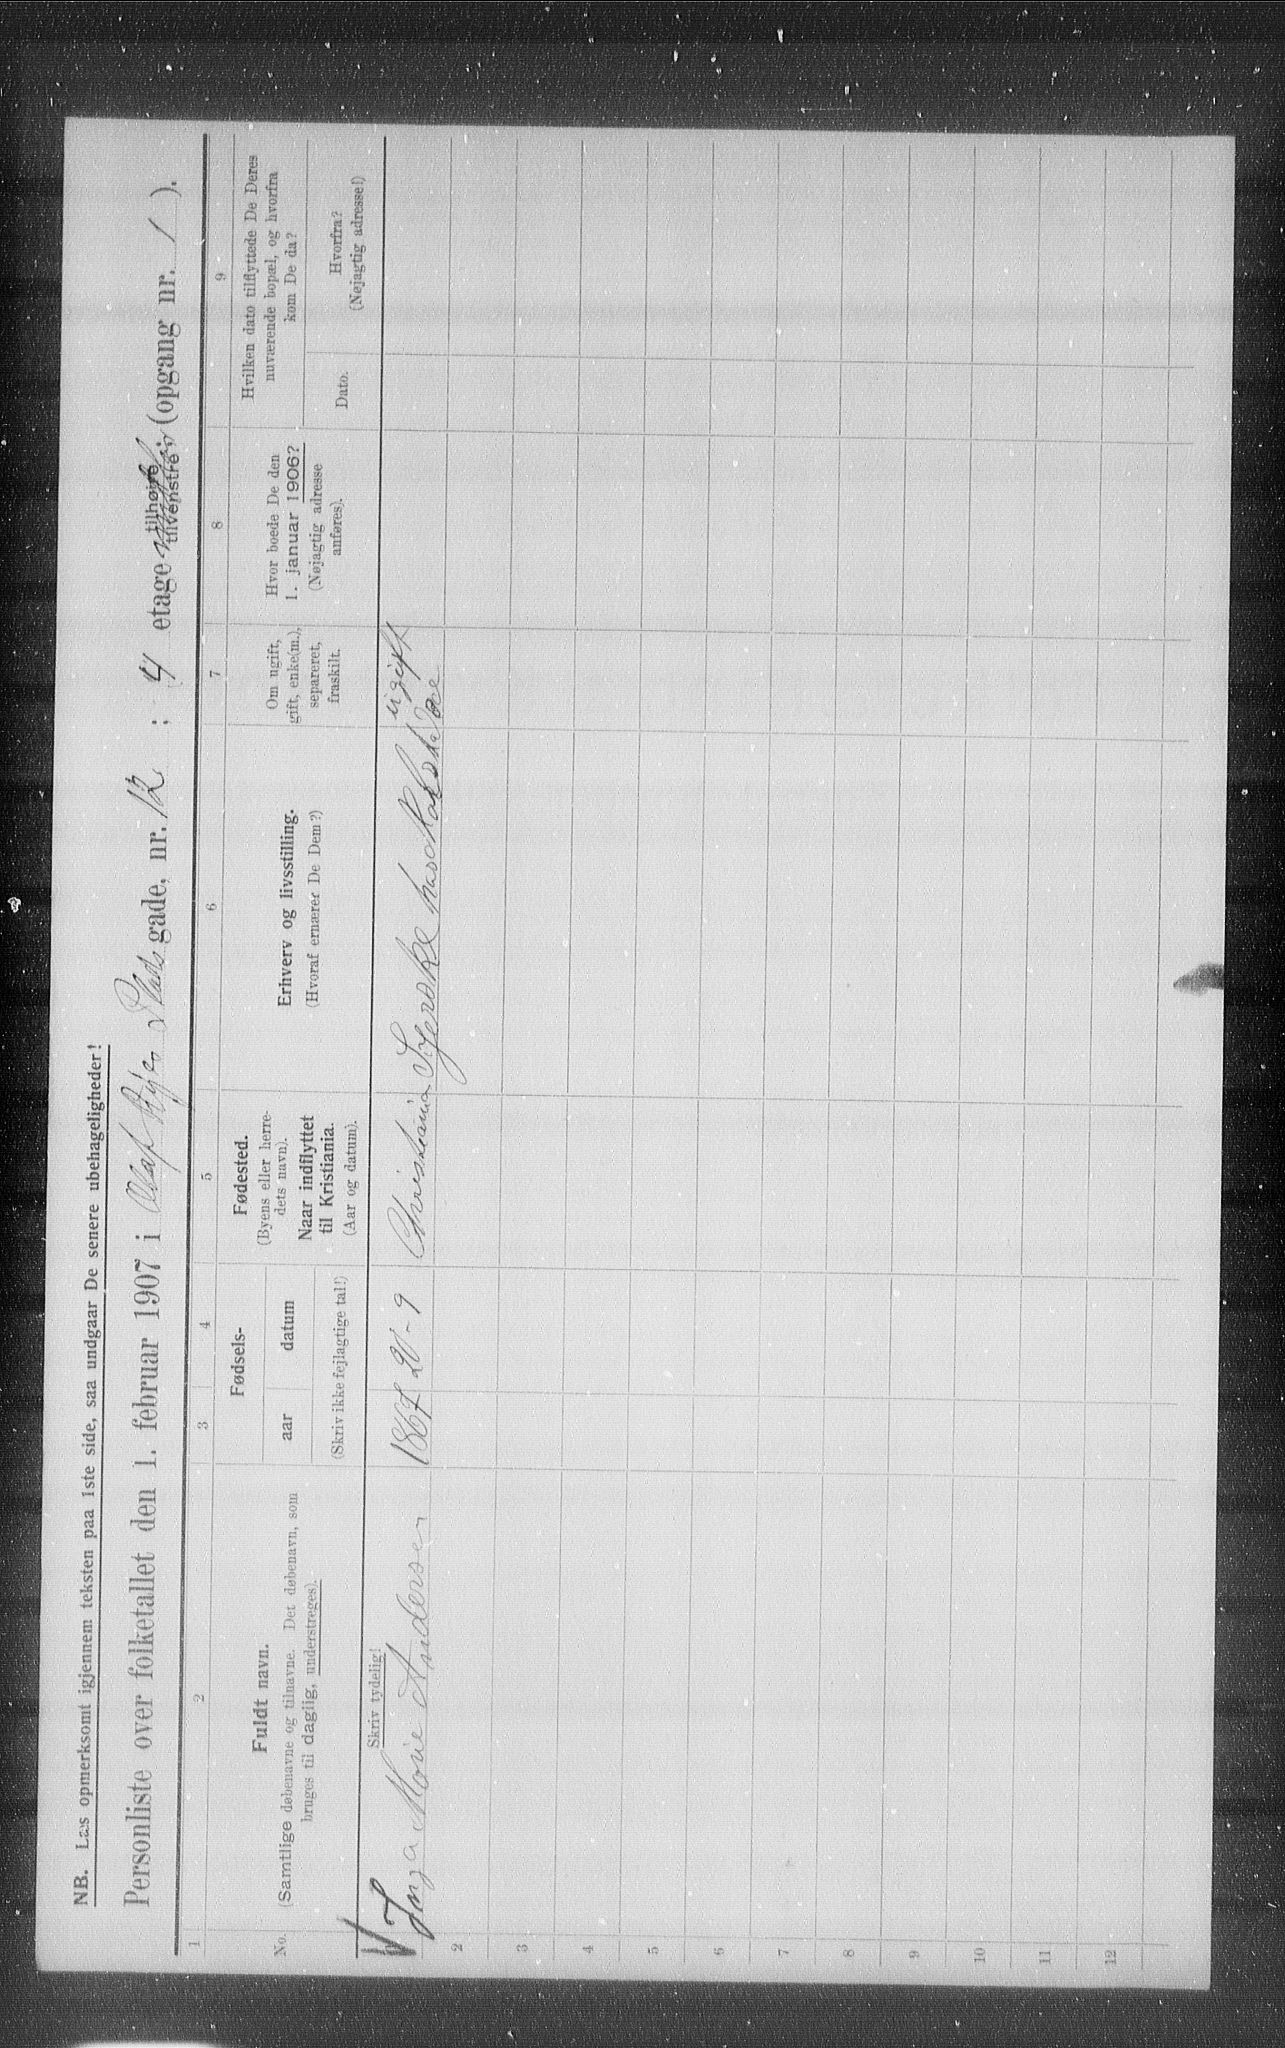 NB. Læs opmerksomt igjennem teksten paa 1ste side, saa undgaar De senere ubehageligheder!
Personliste over folketallet den 1. februar 1907 i Olaf Ryes Plads gade, nr. 12 ; 4 etage tilhøire tilvenstre ; (opgang nr. 1 ).
1 2 3 4 5 6 7 8 9
No.
Fuldt navn.
(Samtlige døbenavne og tilnavne. Det døbenavn, som
bruges til daglig, understreges).
Skriv tydelig!
Fødsels-
aar datum
(Skriv ikke fejlagtige tal!)
Fødested.
(Byens eller herre-
dets navn).
Naar indflyttet
til Kristiania.
(Aar og datum).
Erhverv og livsstilling.
(Hvoraf ernærer De Dem?)
Om ugift,
gift, enke(m.),
separeret,
fraskilt.
Hvor boede De den
1. januar 1906?
(Nøjagtig adresse
anføres).
Hvilken dato tilflyttede De Deres
nuværende bopæl, og hvorfra
kom De da?
Dato.
Hvorfra?
(Nøjagtig adresse!)
Inga Marie Andersen 1867 20-9 Christiania Syerske ugift
2
3
4
5
6
7
8
9
10
11
12